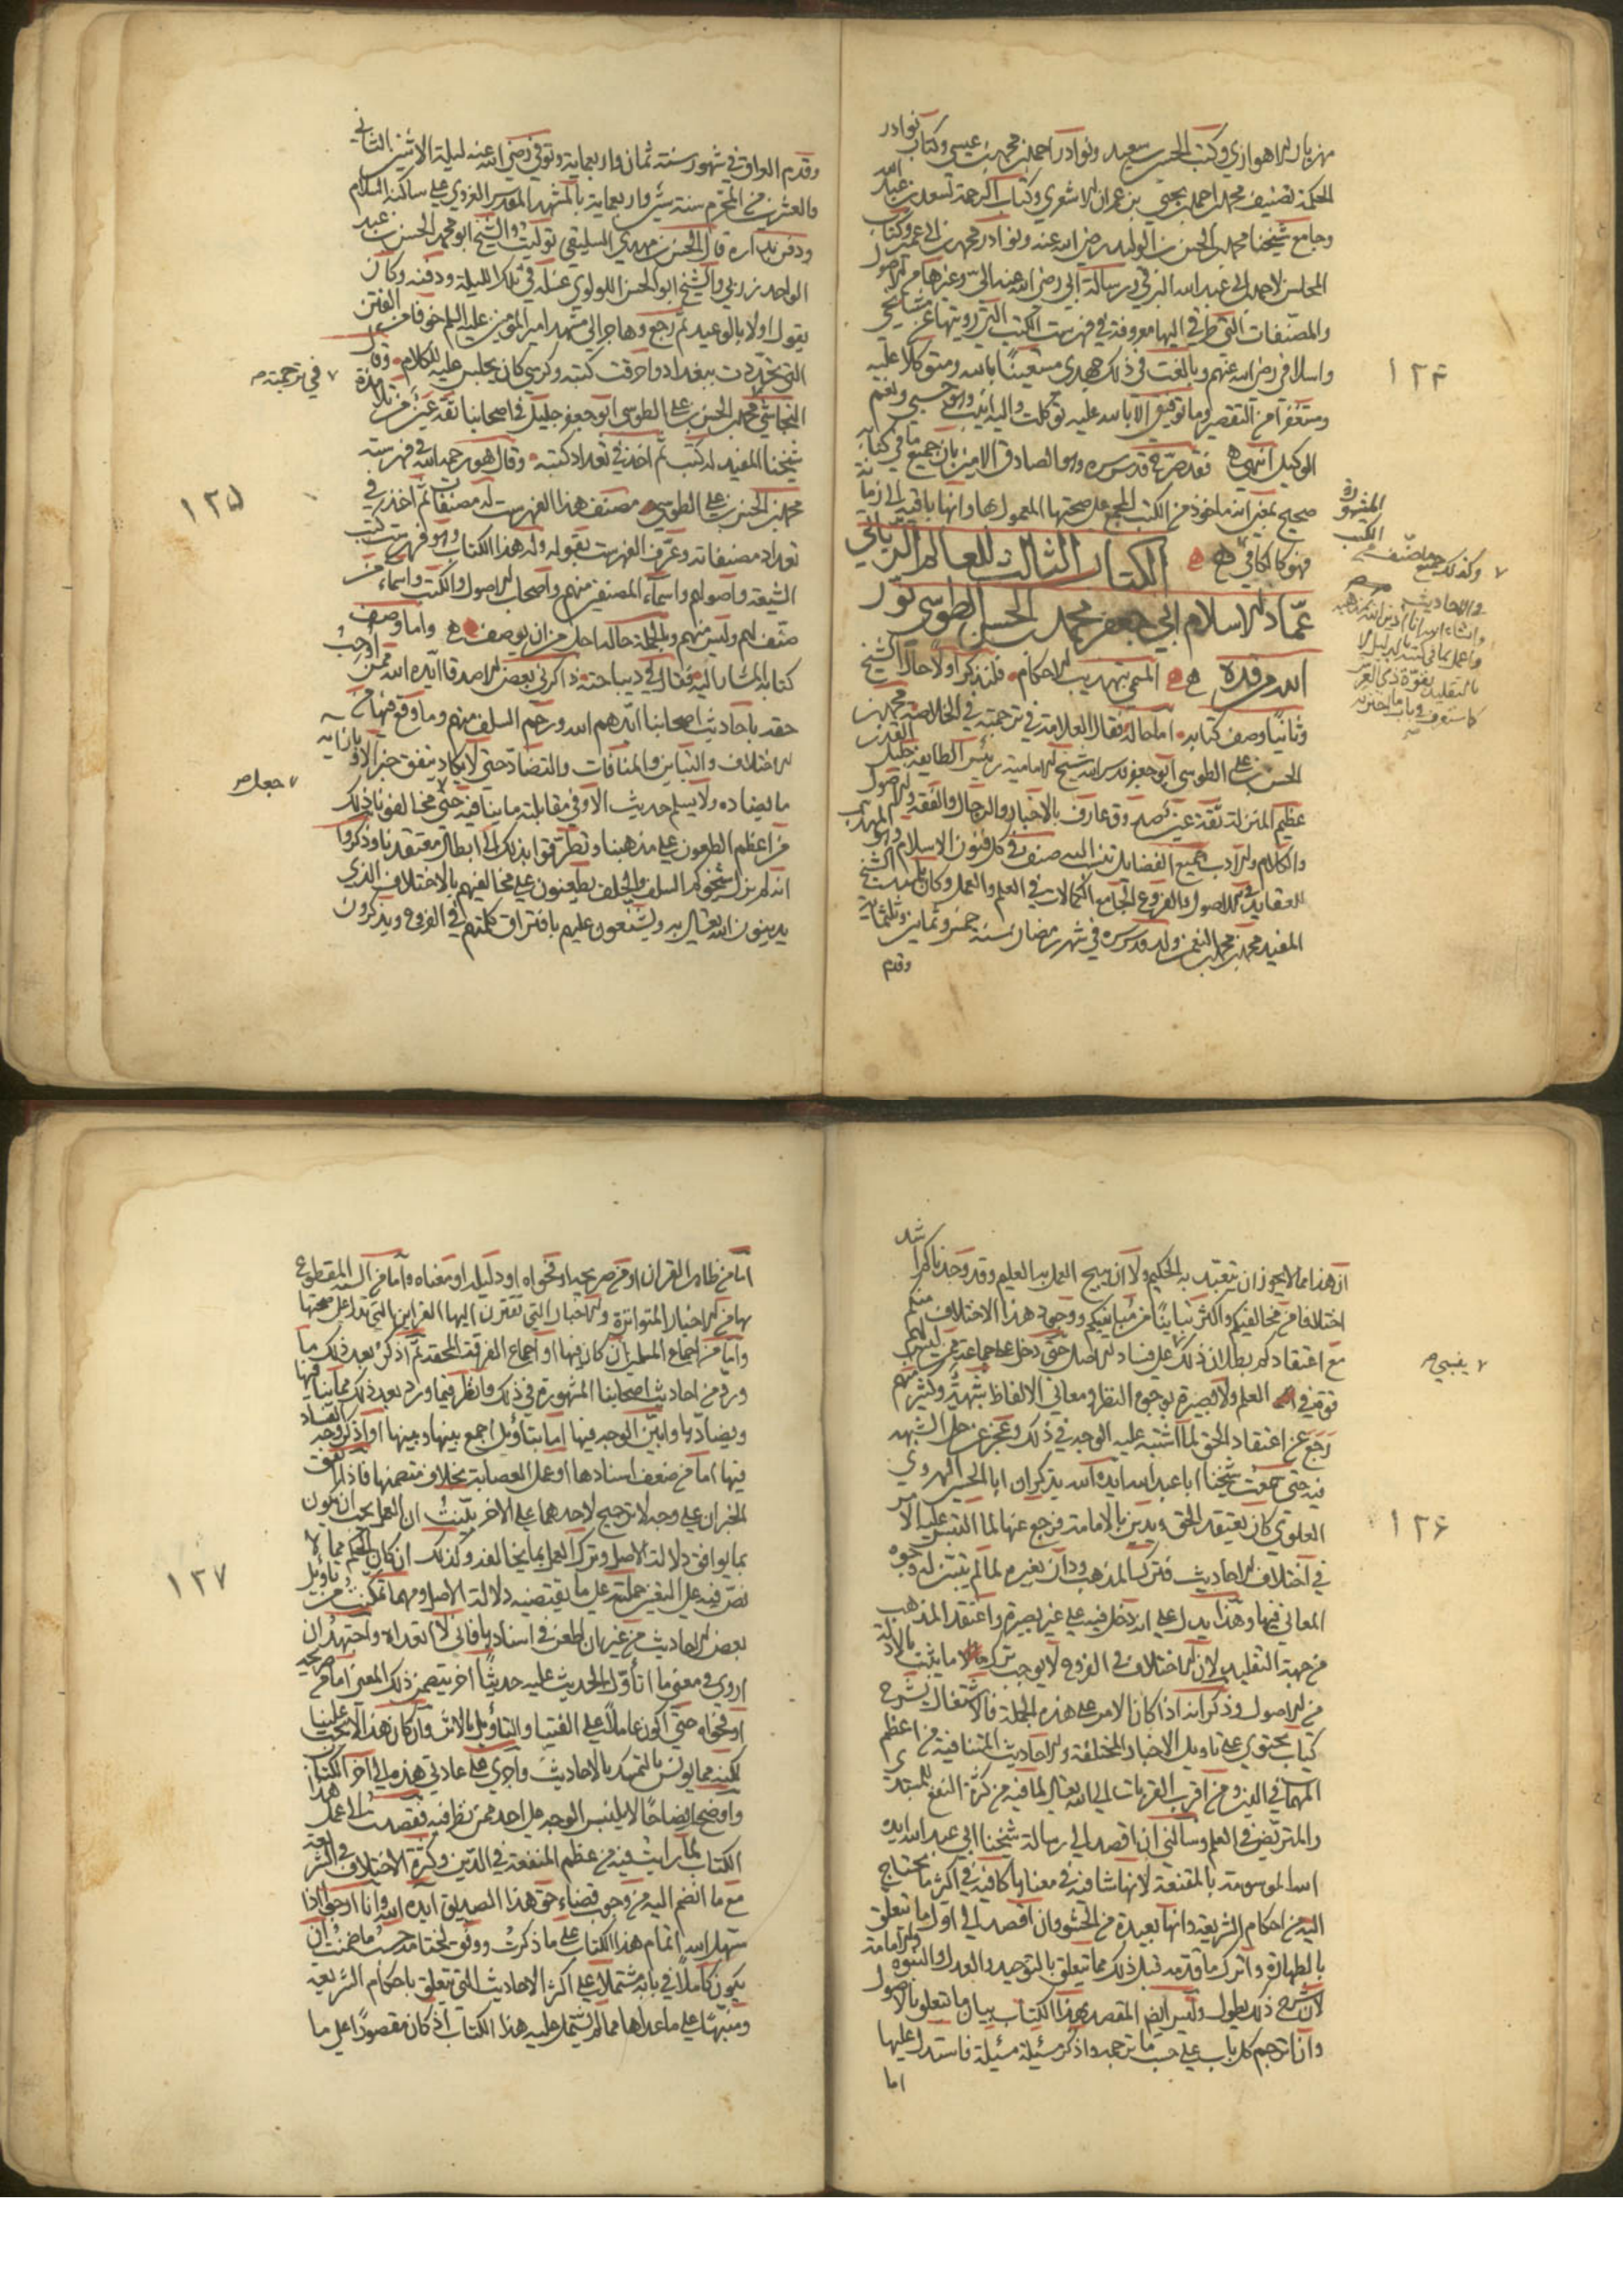 مهزيار الاهوازي وكتب الحسين بن سعيد ونوادر احمد بن محمد بن عيسى وكتاب نوادر
الحكمة تصنيف محمد بن احمد بن يحيى بن عمران الاشعري وكتاب الرحمة لسعد بن عبد الله
وجامع شيخنا محمد بن الحسن بن الوليد رضي الله عنه ونوادر محمد بن ابي عمير وكتاب
المحاسن لاحمد بن ابي عبد الله البرقي ورسالة ابي رضي الله عنه الي وغيرها من الاصول
والمصنفات التي طرقي اليها معروفة في فهرست الكتب التي رويتها عن مشايخي
واسلافي رضي الله عنهم وبالغت في ذلك جهدي مستعينا بالله ومتوكلا عليه
ومستغفرا من التقصير وما توفيقي الا بالله عليه توكلت واليه انيب وهو حسبي ونعم
الوكيل انتهى فقد صرح قدس سره وهو الصادق الامين بان جميع ما في كتابه
صحيح بمعنى انه ماخوذ من الكتب المجمع على صحتها المعمول بها وانها باقية الى زمانه
فهو كالكافي الكتاب الثالث للعالم الرباني
عماد الاسلام ابي جعفر محمد بن الحسن الطوسي نور
الله مرقده المسمى بتهذيب الاحكام فلنذكر اولا حال الشيخ
وثانيا وصف كتابه اما حاله فقال العلامة في ترجمته في الخلاصة محمد بن
الحسن بن علي الطوسي ابو جعفر قدس الله شيخ الامامية رئيس الطايفة جليل القدر
عظيم المنزلة ثقة عين صدوق عارف بالاخبار والرجال والفقه والاصول
والكلام والادب جميع الفضايل تنسب اليه صنف في كل فنون الاسلام وهو المهذب
للعقايد في الاصول والفروع الجامع لكمالات في العلم والعمل وكان تلميذ الشيخ
المفيد محمد بن محمد بن النعمن ولد قدس سره في شهر رمضان سنة خمس وثمانين وثلثماية
وقدم
١٢٤
المشهورة
الكتب
وكذلك جميع ما صنف من
والاحاديث
وانشاء الله انا ادين الله بمذهبه
واعمل بما في كتبه بالدليل لا
بالتقليد بقوة ذي العرش
كما ستعرف في باب ما اخترته
وقدم العراق في شهور سنة ثمان واربعماية وتوفي رضي الله عنه ليلة الاثنين الثاني
والعشرين من المحرم سنة ستين واربعماية بالمشهد المقدس الغروي على ساكنه السلام
ودفن بداره قال الحسن بن مهدي السليقي توليت انا والشيخ ابو محمد الحسن بن عبد
الواحد زربي والشيخ ابو الحسن اللولوي غسله في تلك الليلة ودفنه وكان
يقول اولا بالوعيد ثم رجع وهاجر الى مشهد امير المؤمنين عليه السلم خوفا من الفتن
التي تجددت ببغداد واحرقت كتبه وكرسي كان يجلس عليه للكلام وقال
النجاشي محمد بن الحسن بن علي الطوسي ابو جعفر جليل في اصحابنا ثقة عين من تلامذة
شيخنا المفيد له كتب ثم اخذ في تعداد كتبه وقال هو رحمه الله في فهرسته
محمد بن الحسن بن علي الطوسي مصنف هذا الفهرست له مصنفات ثم اخذ في
تعداد مصنفاته وعرف الفهرست بقوله وله هذا الكتاب وهو فهرست كتب
الشيعة واصولهم واسماء المصنفين منهم واصحاب الاصول والكتب واسماء من
صنف لهم وليس منهم وبالجملة حاله اجل من ان يوصف واما وصف
كتابه المشار اليه فقال في ديباجته ذاكرني بعض الاصدقا ايده الله ممن اوجب
حقه باحاديث اصحابنا ايدهم الله ورحم السلف منهم وما وقع فيها من
الاختلاف والتباين والمنافات والتضاد حتى لا يكاد يتفق خبر الا وبازائه
ما يضاده ولا يسلم حديث الا وفي مقابلته ما ينافيه حتى مخالفونا ذلك
من اعظم الطعون على مذهبنا وتطرقوا بذلك الى ابطال معتقدنا وذكروا
انه لم يزل شيوخكم السلف والخلف يطعنون على مخالفيهم بالاختلاف الذي
يدينون الله تعالى به ويشنعون عليهم بافتراق كلمتهم في الفروع ويذكرون
في ترجمته
١٢٥
جعل
ان هذا مما لا يجوز ان يتعبد به الحكيم ولا ان يبيح العمل به العليم وقد وجدناكم اشد
اختلافا من مخالفيكم واكثر تباينا من مباينيكم ووجود هذا الاختلاف منكم
مع اعتقادكم بطلان ذلك على فساد الاصل حتى دخل على جماعة ممن ليس لهم
قوة في العلم ولا بصيرة بوجوه النظر ومعاني الالفاظ شبهة وكثير منهم
رجع عن اعتقاد الحق لما اشتبه عليه الوجه في ذلك وعجز عن حل الشبهة
فيه حتى سمعت شيخنا ابا عبد الله ايده الله يذكر ان ابا الحسين الهروي
العلوي كان يعتقد الحق ويدين بالامامة فرجع عنها لما التبس عليه الامر
في اختلاف الاحاديث فترك المذهب ودان بغيره لما لم يتبين له وجوه
المعاني فيها وهذا يدل على انه دخل فيه على غير بصيرة واعتقد المذهب
من جهة التقليد لان الاختلاف في الفروع لا يوجب ترك ما ثبت بالادلة
من الاصول وذكر انه اذا كان الامر على هذه الجملة فالاشتغال بشرح
كتاب يحتوي على تاويل الاخبار المختلفة والاحاديث المتنافية من اعظم
المهمات في الدين ومن اقرب القربات الى الله تعالى لما فيه من كثرة النفع للمبتدي
والمتريض في العلم وسألني ان اقصد الى رسالة شيخنا ابي عبد الله ايده
الله الموسومة بالمقنعة لانها شافية في معناها كافية في اكثر ما يحتاج
اليه من احكام الشريعة وانها بعيدة من الحشو وان اقصد الى اول ما يتعلق
بالطهارة واترك ما قدمه قبل ذلك مما يتعلق بالتوحيد والعدل والنبوة والامامة
لان شرح ذلك يطول وليس ايضا المقصد بهذا الكتاب بيان ما يتعلق بالاصول
وان اترجم كل باب على حسب ما ترجمه واذكر مسئلة مسئلة فاستدل عليها
اما
يفيي
١٢٦
اما من ظاهر القران او من صريحه او فحواه او دليله او معناه واما من السنة المقطوع
بها من الاخبار المتواترة والاخبار التي تقترن اليها القراين التي تدل على صحتها
واما من اجماع المسلمين ان كان فيها او اجماع الفرقة المحقة ثم اذكر بعد ذلك ما
ورد من احاديث اصحابنا المشهورة في ذلك وانظر فيما ورد بعد ذلك مما ينافيها
ويضادها وابين الوجه فيها اما بتاويل اجمع بينها وبينها او اذكر وجه الفساد
فيها اما من ضعف اسنادها او عمل العصابة بخلاف متضمنها فاذا اتفق
الخبران على وجه لا ترجيح لاحدهما على الاخر بينت ان العمل يجب ان يكون
بما يوافق دلالة الاصل وترك العمل بما يخالفه وكذلك ان كان الحكم مما لا
نص فيه على التعيين حملته على ما يقتضيه دلالة الاصل ومهما تمكنت من تاويل
بعض الاحاديث من غير ان اطعن في اسنادها فاني لا اتعداه واجتهد ان
اروي في معنى ما اتأول الحديث عليه حديثا اخر يتضمن ذلك المعنى اما من صريحه
او فحواه حتى اكون عاملا على الفتيا والتاويل بالاثر وان كان هذا لا يجب علينا
لكنه مما يونس بالتمسك بالاحاديث واجري على عادتي هذه الى اخر الكتاب
واوضح ايضاحا لا يلتبس الوجه على احد ممن نظر فيه فقصدت الى عمل هذا
الكتاب لما رايت فيه من عظم المنفعة في الدين وكثرة الاختلاف في الشريعة
مع ما انضم اليه من وجوب قضاء حق هذا الصديق ايده الله وانا ارجو اذا
سهل الله اتمام هذا الكتاب على ما ذكرت ووفق لختامه حسب ما ضمنت ان
يكون كاملا في بابه مشتملا على اكثر الاحاديث التي تتعلق باحكام الشريعة
ومنبها على ما عداها مما لم يشتمل عليه هذا الكتاب اذ كان مقصورا على ما
١٢٧